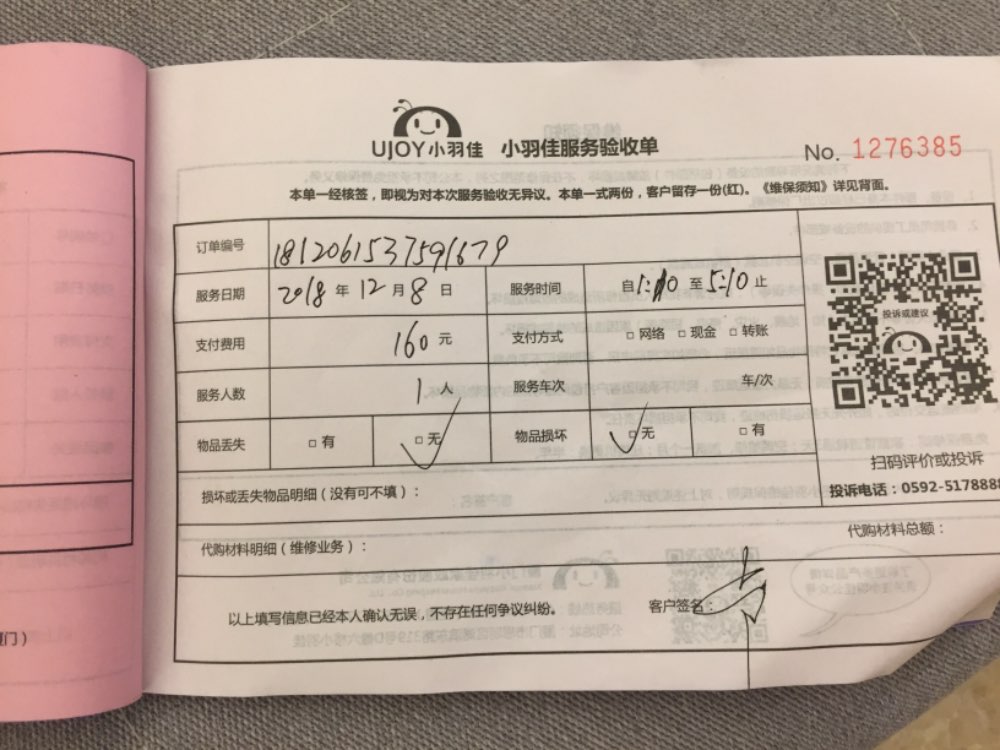 UJOY小羽佳 小羽佳服务验收单 No. 1276385
本单一经核签，即视为对本次服务验收无异议。本单一式两份，客户留存一份(红)。《维保须知》详见背面。
订单编号 1812061537591679
服务日期 2018年12月8日 服务时间 自1:10至5:10止
支付费用 160元 支付方式 □网络 □现金 □转账
服务人数 1人 服务车次 车/次
物品丢失 □有 □无 物品损坏 □无 □有
投诉或建议
扫码评价或投诉
损坏或丢失物品明细（没有可不填）：
投诉电话：0592-5178888
代购材料明细（维修业务）： 代购材料总额：
以上填写信息已经本人确认无误，不存在任何争议纠纷。 客户签名：
门）